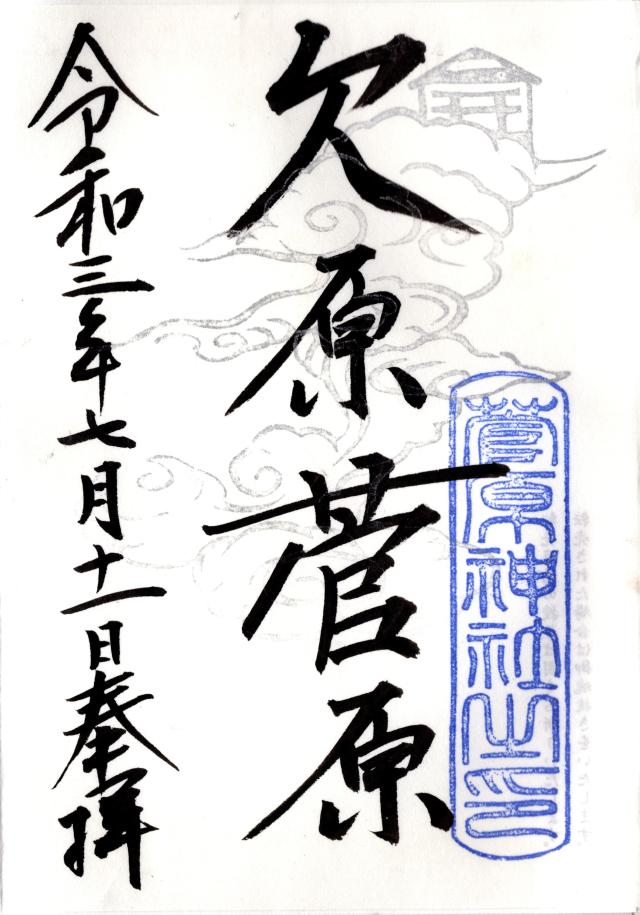 菅原神社之印
欠原菅原
令和三年七月十一日奉拝